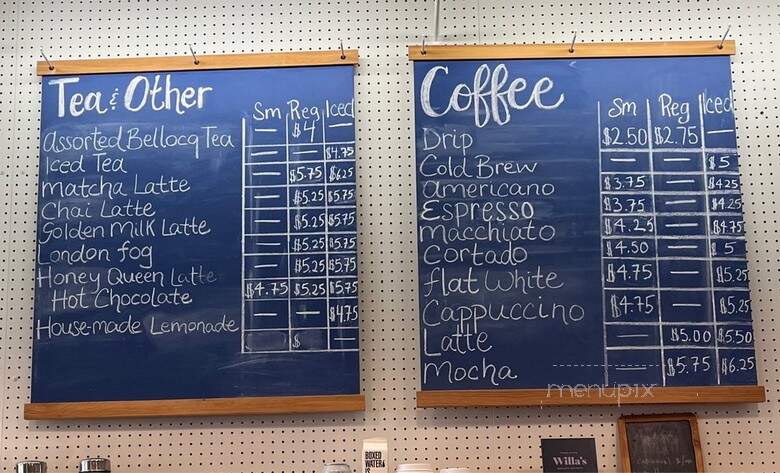 Tea & Other
Sm Reg Iced
Assorted Bellocq Tea — $4 —
Iced Tea — — $4.75
Matcha Latte — $5.75 $6.25
Chai Latte — $5.25 $5.75
Golden Milk Latte — $5.25 $5.75
London fog — $5.25 $5.75
Honey Queen Latte — $5.25 $5.75
Hot Chocolate $4.75 $5.25 $5.75
House-made Lemonade — — $4.75
$ —
Coffee
Sm Reg Iced
Drip $2.50 $2.75 —
Cold Brew — — $5
Americano $3.75 — $4.25
Espresso $3.75 — $4.25
Macchiato $4.25 — $4.75
Cortado $4.50 — $5
flat White $4.75 — $5.25
Cappuccino $4.75 — $5.25
Latte — $5.00 $5.50
Mocha — $5.75 $6.25
menupix
BOXED
WATER
IS
Willa's